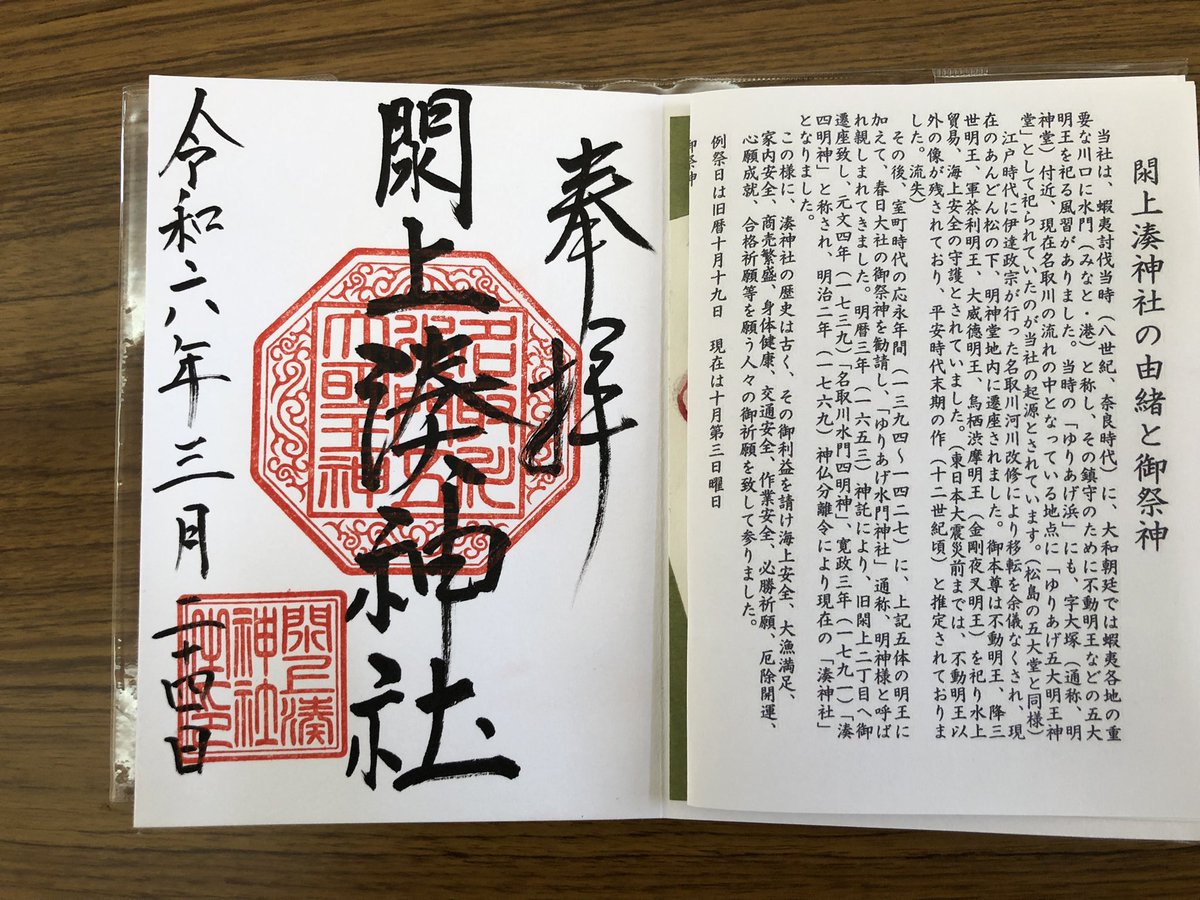 閖上湊神社の由緒と御祭神
当社は、蝦夷討伐当時（八世紀、奈良時代）に、大和朝廷では蝦夷各地の重
要な川口に水門（みなと・港）と称し、その鎮守のために不動明王などの五大
明王を祀る風習がありました。当時の「ゆりあげ浜」にも、字大塚（通称、明
神堂）付近、現在名取川の流れの中となっている地点に「ゆりあげ五大明王神
堂」として祀られていたのが当社の起源とされています。（松島の五大堂と同様）
江戸時代に伊達政宗が行った名取川河川改修により移転を余儀なくされ、現
在のあんどん松の下、明神堂地内に遷座されました。御本尊は不動明王、降三
世明王、軍荼利明王、大威徳明王、烏栖渋摩明王（金剛夜叉明王）を祀り水上
貿易、海上安全の守護とされていました。（東日本大震災前までは、不動明王以
外の像が残されており、平安時代末期の作（十二世紀頃）と推定されておりま
した。流失）
その後、室町時代の応永年間（一三九四～一四二七）に、上記五体の明王に
加えて、春日大社の御祭神を勧請し、「ゆりあげ水門神社」通称、明神様と呼ば
れ親しまれてきました。明暦三年（一六五三）神託により、旧閖上二丁目へ御
遷座致し、元文四年（一七三九）「名取川水門四明神」、寛政三年（一七九一）「湊
四明神」と称され、明治二年（一七六九）神仏分離令により現在の「湊神社」
となりました。
この様に、湊神社の歴史は古く、その御利益を請け海上安全、大漁満足、
家内安全、商売繁盛、身体健康、交通安全、作業安全、必勝祈願、厄除開運、
心願成就、合格祈願等を願う人々の御祈願を致して参りました。
例祭日は旧暦十月十九日　現在は十月第三日曜日
御祭神
奉拝
閖上湊神社
令和六年三月二十四日
閖上湊
神社